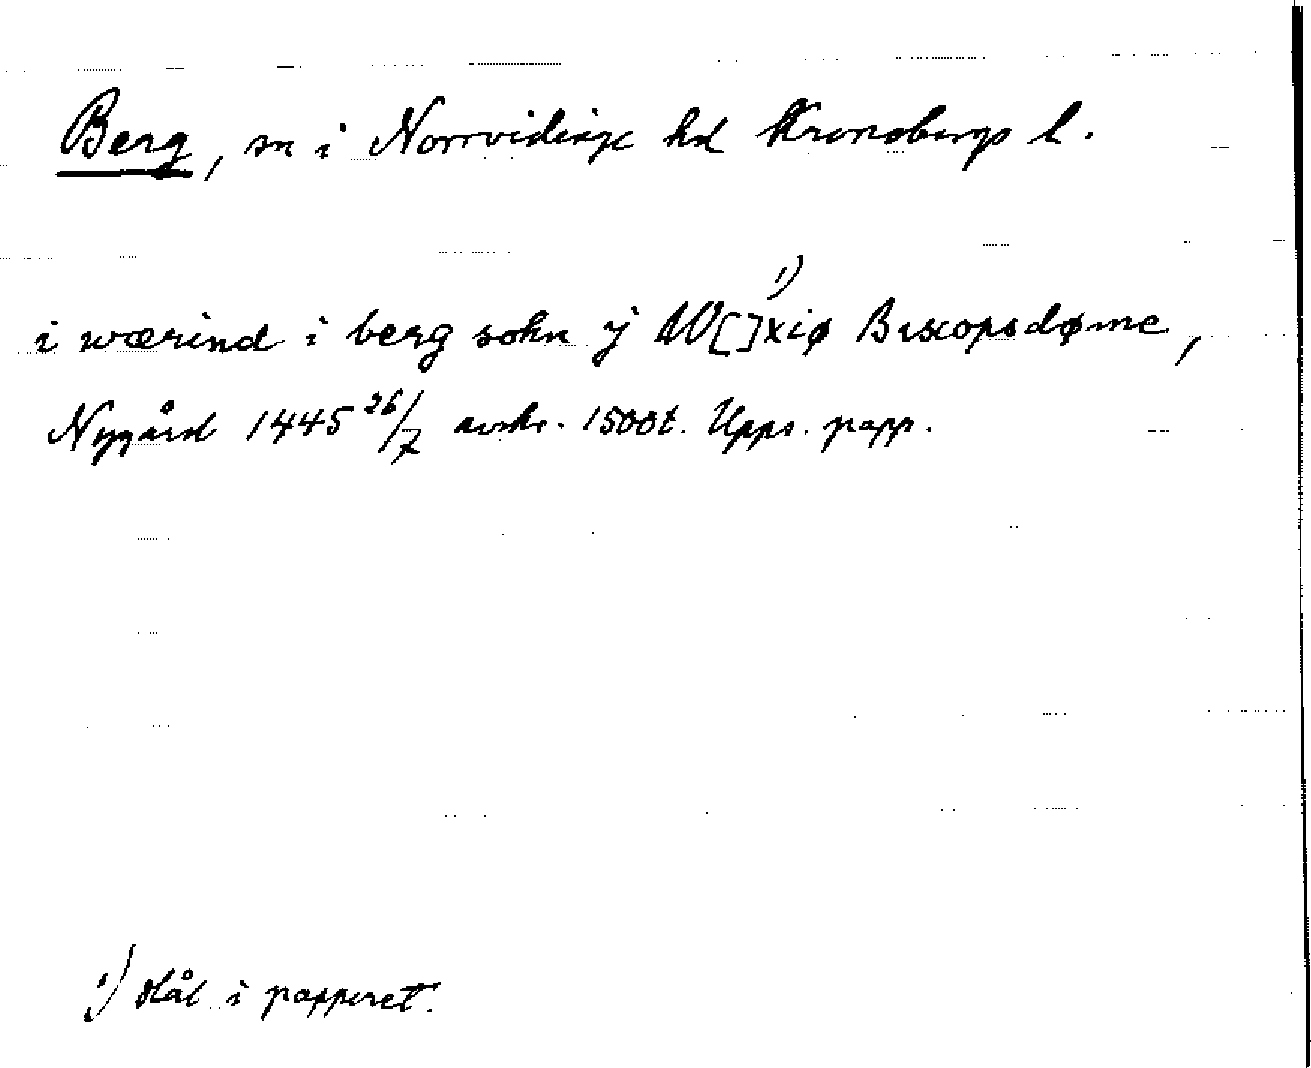 Berg, sn i Norrvidinge hd Kronobergs l.
i wærind i berg sokn ÿ W[]xiø 1) Biscopsdøme,
Nygård 1445 26/7 avskr. 1500t. Upps. papp.
1) Hål i papperet.